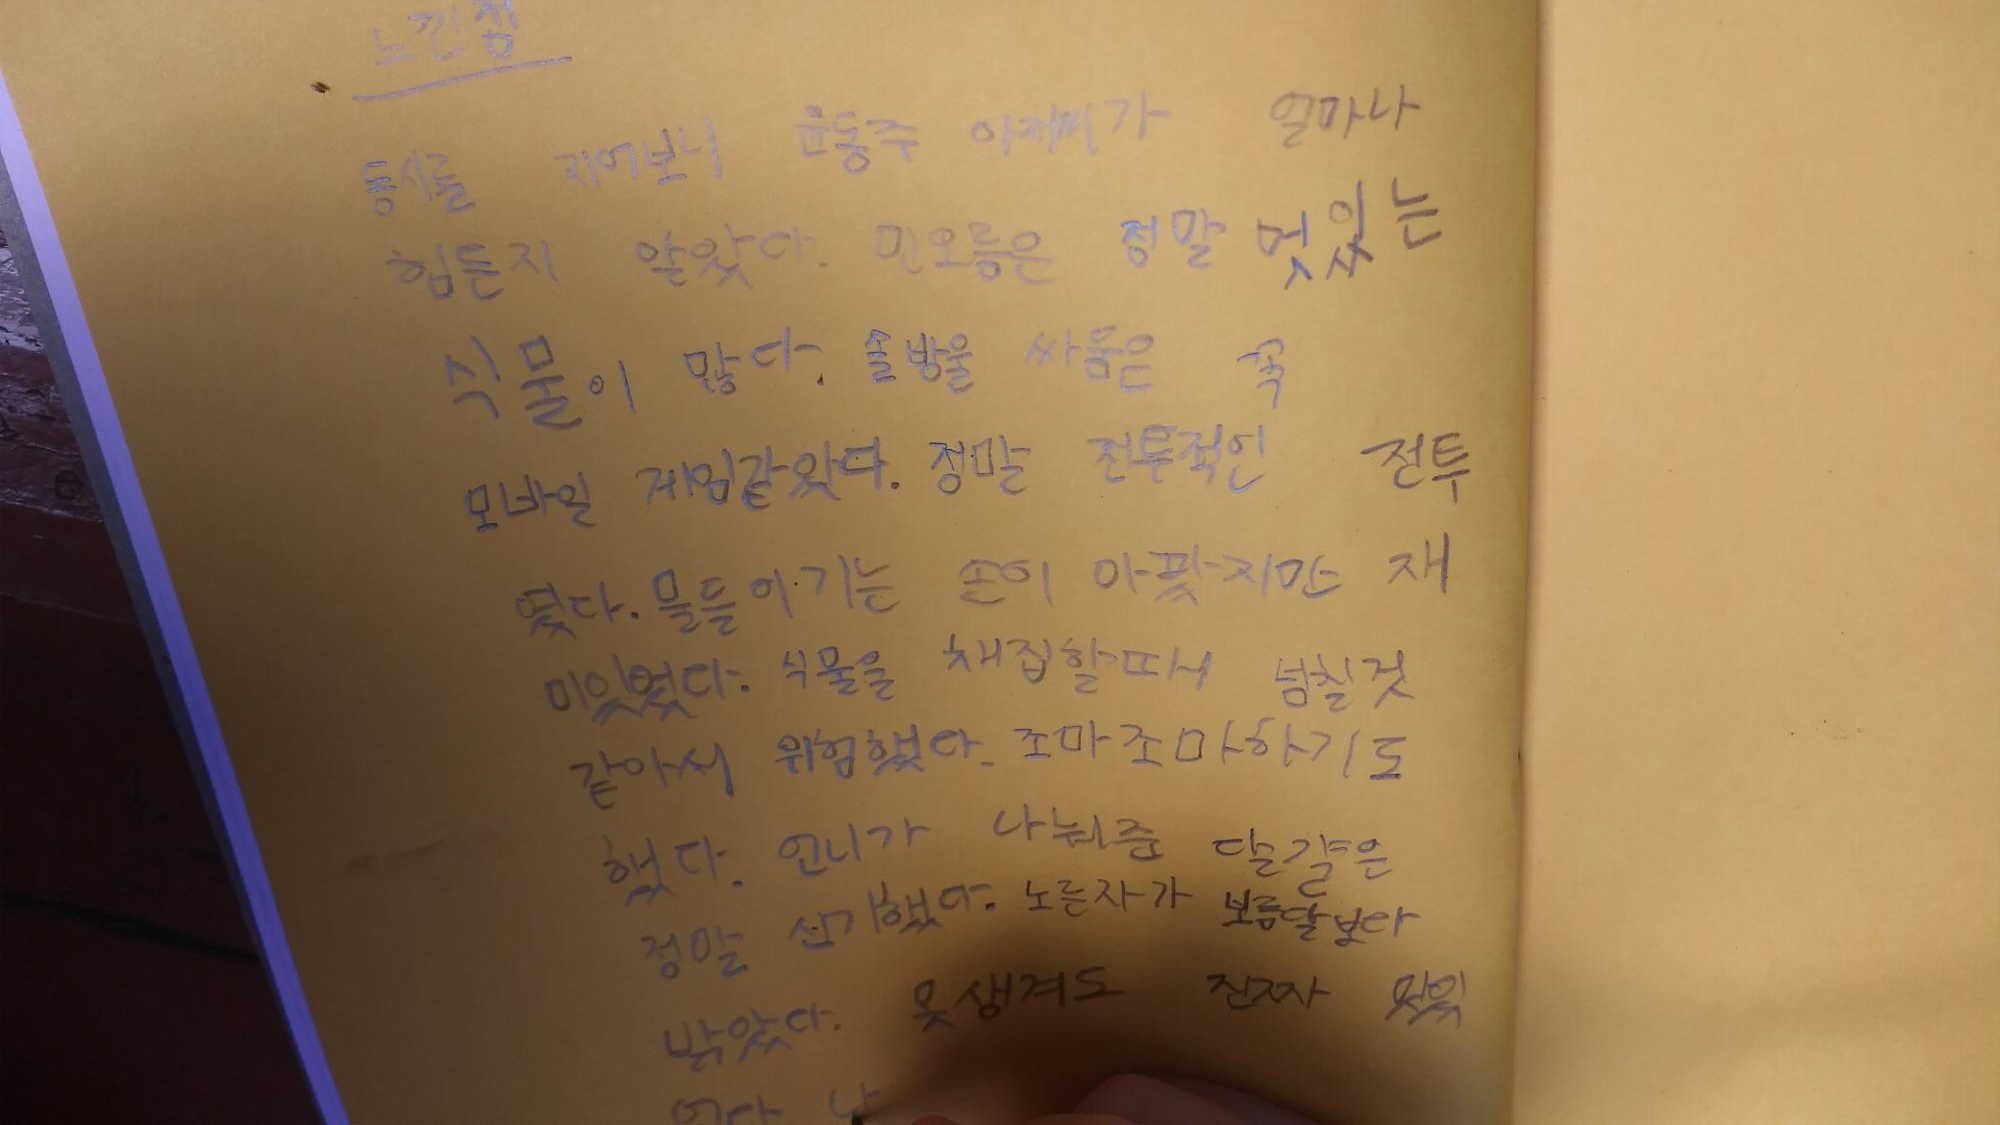 느낀점
동시를 지어보니 윤동주 아저씨가 얼마나
힘든지 알았다. 민오름은 정말 멋있는
식물이 많다. 솔방울 싸움은 꼭
모바일 게임같았다. 정말 전투적인 전투
였다. 물들이기는 손이 아팟지만 재
미있었다. 식물을 채집할때 넘칠것
같아서 위험했다. 조마조마하기도
했다. 언니가 나눠준 달걀은
정말 신기했다. 노른자가 보름달보다
밝았다. 못생겨도 진짜 맛있
었다. 난